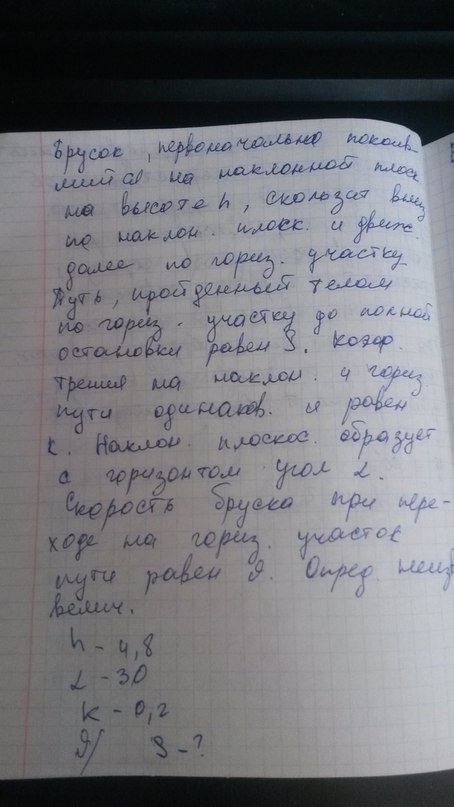 Брусок, первоначально покоив-
шийся на наклонной плоск.
на высоте h, скользит вниз
по наклон. плоск. и движ.
далее по гориз. участку
Путь, пройденный телом
по гориз. участку до полной
остановки равен S. Коэф.
трения на наклон. и гориз
пути одинаков. и равен
K. Наклон. плоскос. образует
с горизонтом угол α.
Скорость бруска при пере-
ходе на гориз. участок
пути равен ϑ. Опред. неизв
велич.
h - 4,8
α - 30
K - 0,2
ϑ/ S - ?